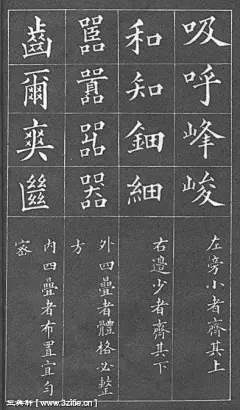 吸呼峰峻
左傍小者齊其上
和知鈿細
右邊少者齊其下
嚚囂噐器
外四疊者體格必整
方
齒爾爽
內四疊者布置宜勻
密
【www.3zitie.cn】